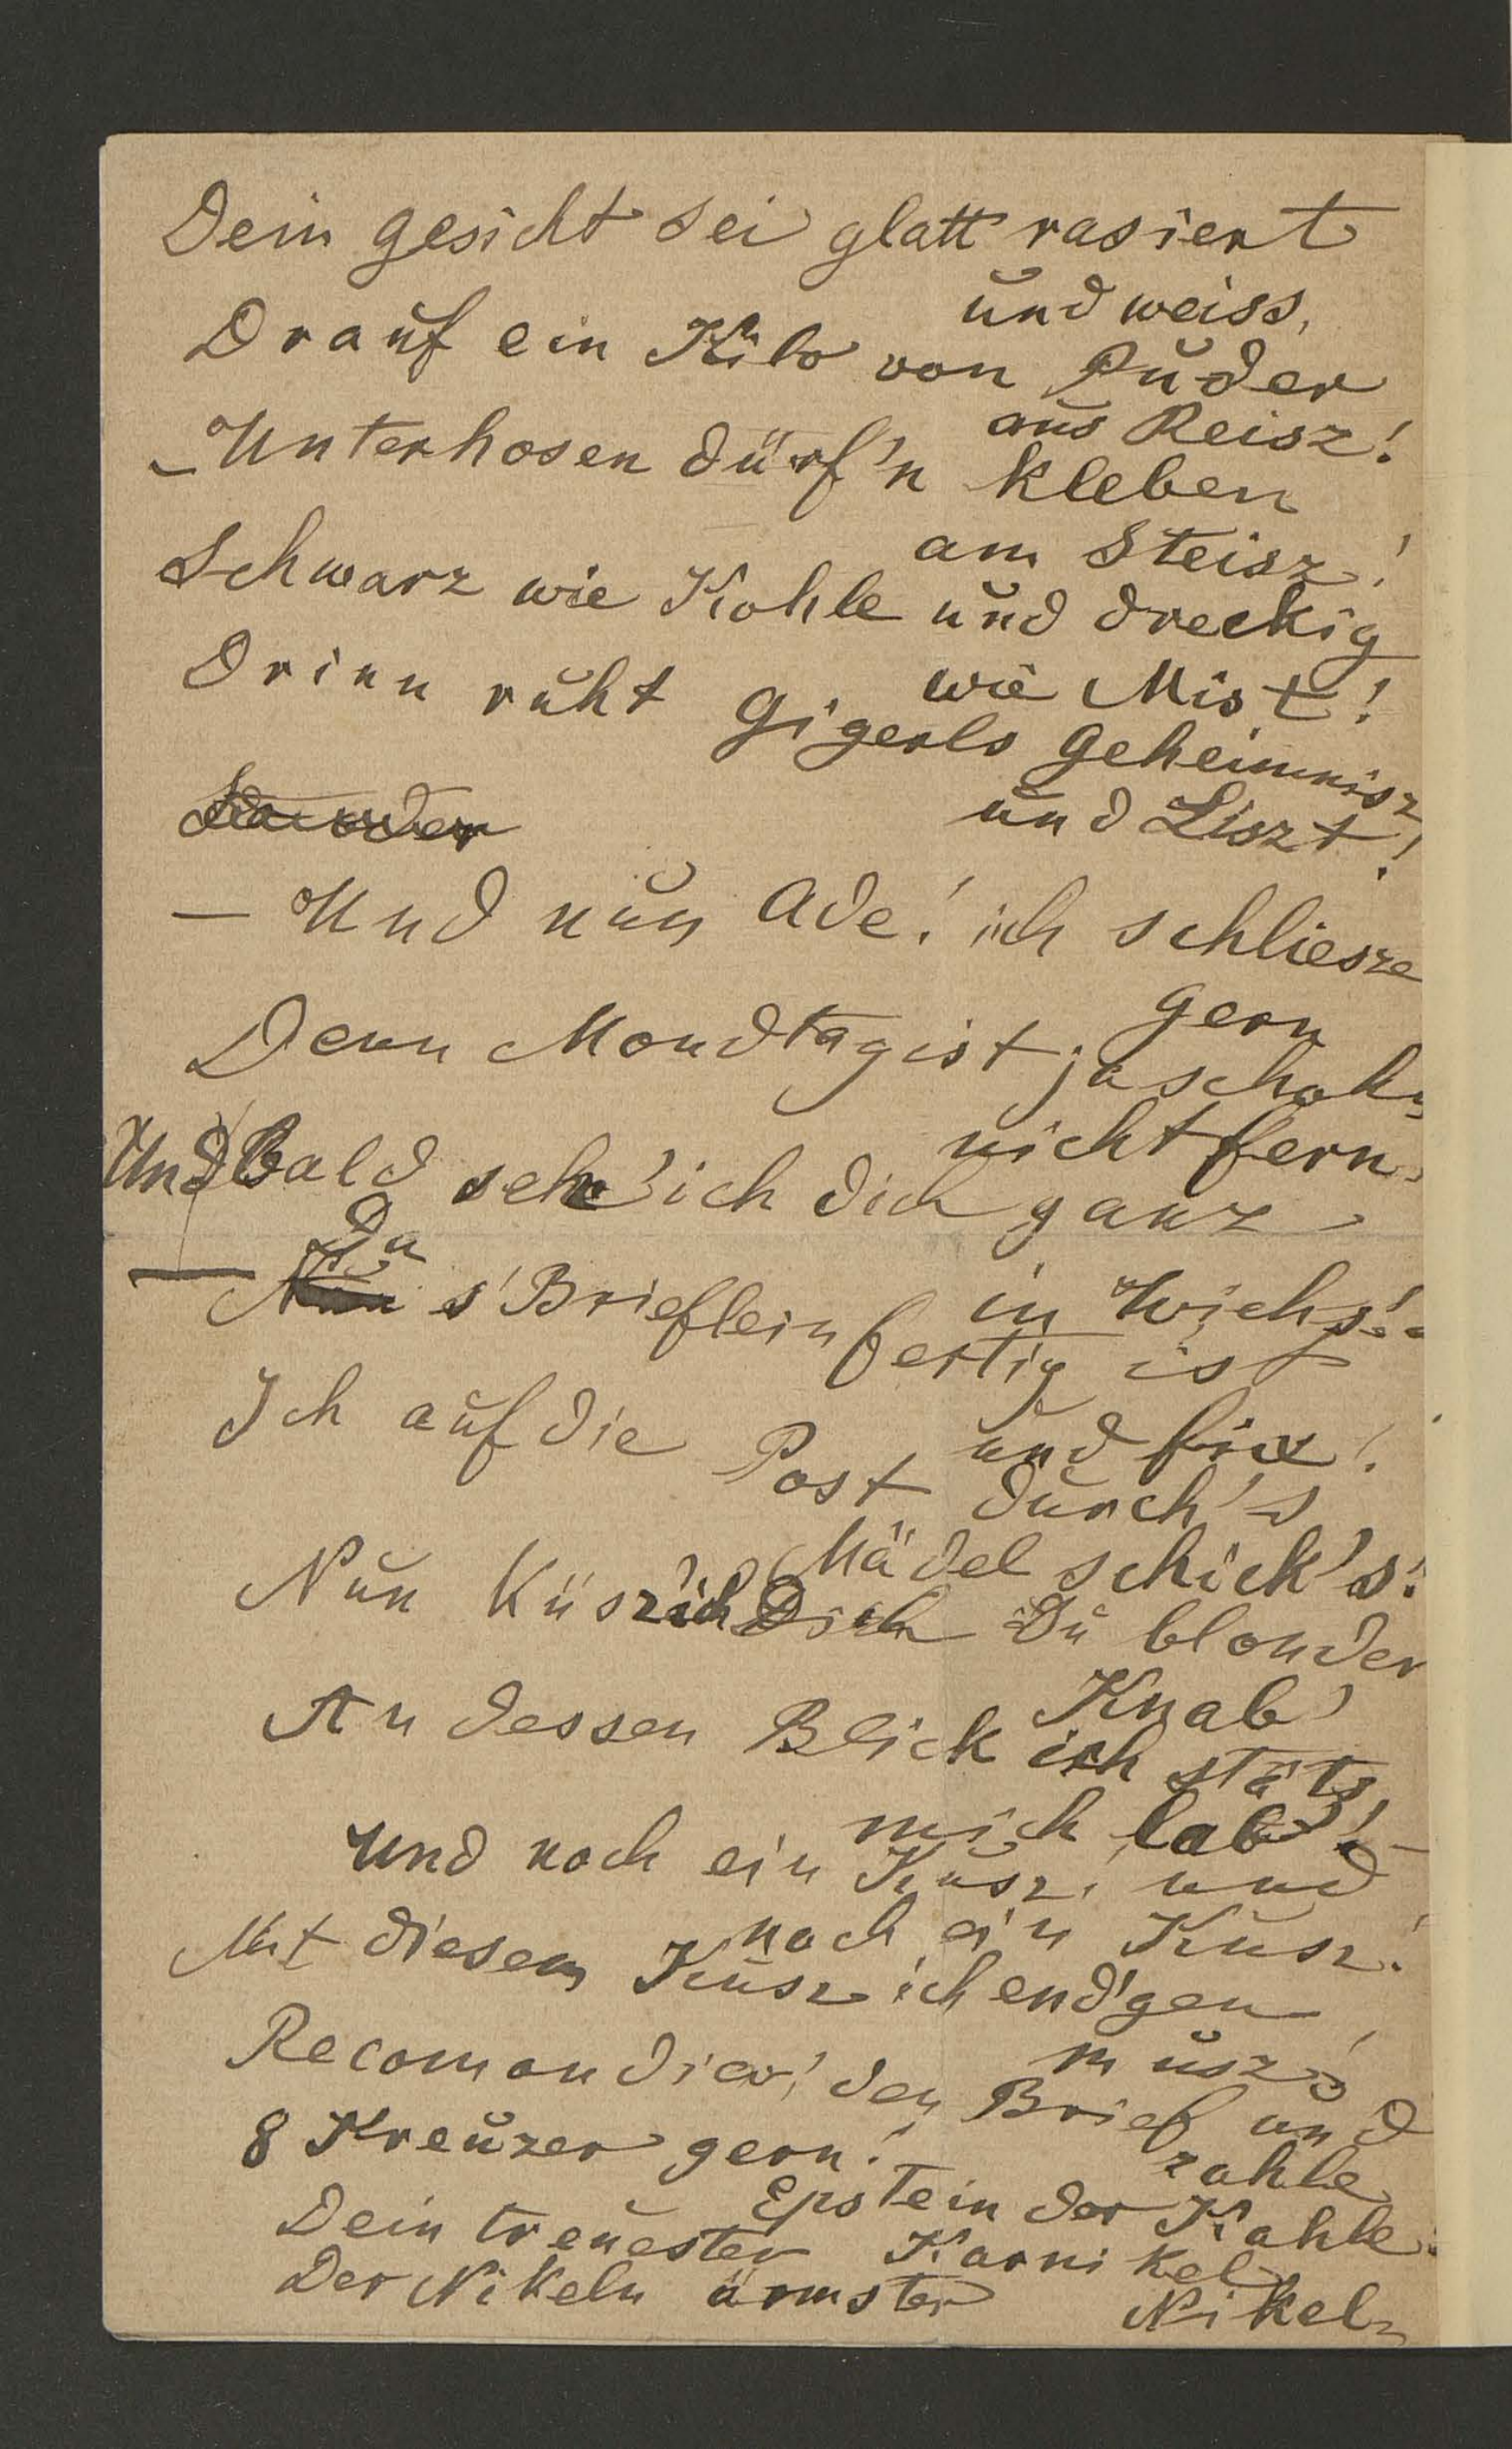 Dein gesicht sei glatt rasiert
und weiss,
Drauf ein Kilo von Puder
aus Reisz!
– Unterhosen dürf'n kleben
am Steisz!
Schwarz wie Kohle und dreckig
wie Mist!
Drinn ruht gigerls geheimnisz
und Liszt!
– Und nun Ade! ich schliesze
gern
Denn Mondtag ist ja schohn
nicht fern.
Und Bald seh' ich dich ganz
in Wichs!
– Da s'Brieflein fertig ist
und fix!
Ich auf die Post durch's
Mädel schick's!
Nun Küsz' ich Dich Du blonder
Knab'
An dessen Blick ich stäts
mich lab'! –
Und noch ein Kusz! und
noch ein Kusz!
Mit diesem Kusz ich end'gen
musz!
Recomandier' den Brief und
zahle
8 Kreuzer gern!
Epstein der Kahle.
Dein treuester Karnikel
Der Nikeln ärmster Nikel